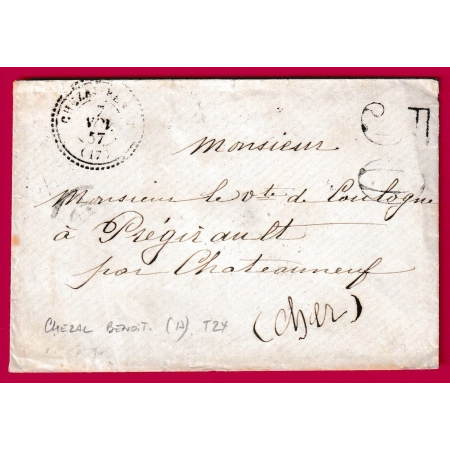 CHEZAL-BEN
NOV.
57
(17)
Monsieur
Monsieur le Vte de Coulogne
à Prégirault
par Chateauneuf
(Cher)
CHEZAL BENOIT. (17) T24